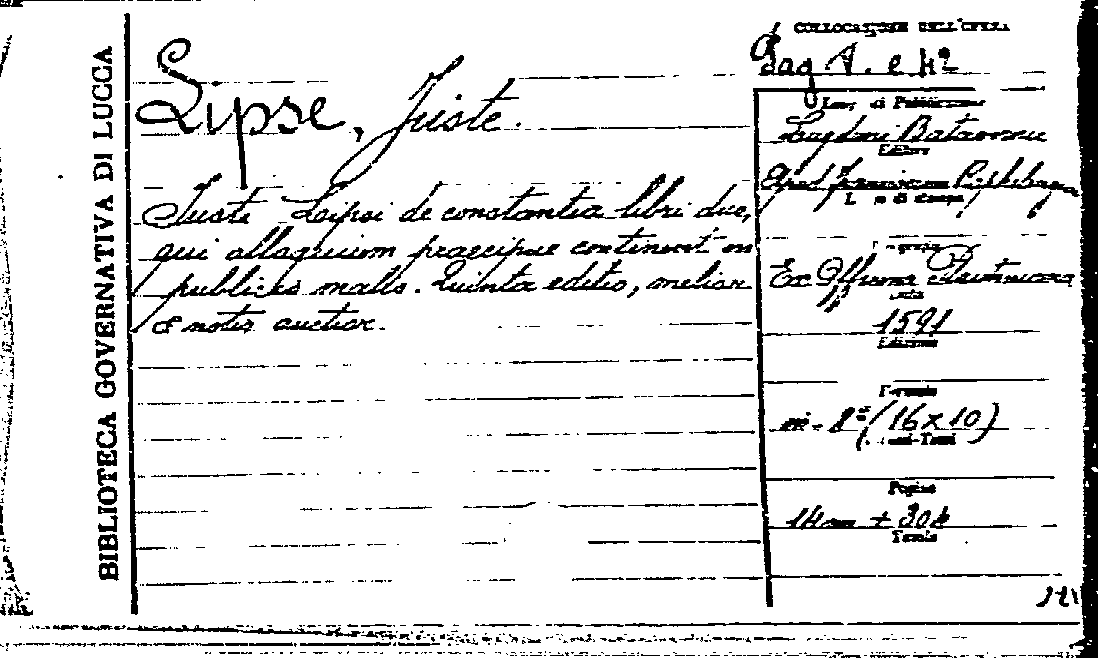 BIBLIOTECA GOVERNATIVA DI LUCCA
Lipse, Juste.
Justi Lipsi de constantia libri duo,
qui alloquium praecipue continent in
publicis malis. Quinta editio, melior
& notis auctior.
COLLOCAZIONE DELL'OPERA
Luog. di Pubblicazione
Lugduni Batavorum
Editore
Apud Franciscum
L di stampa
Ex Officina Plantiniana
Data
1591
Edizione
Formato
in-8º (16x10)
Pagine
+ 304
Tavole